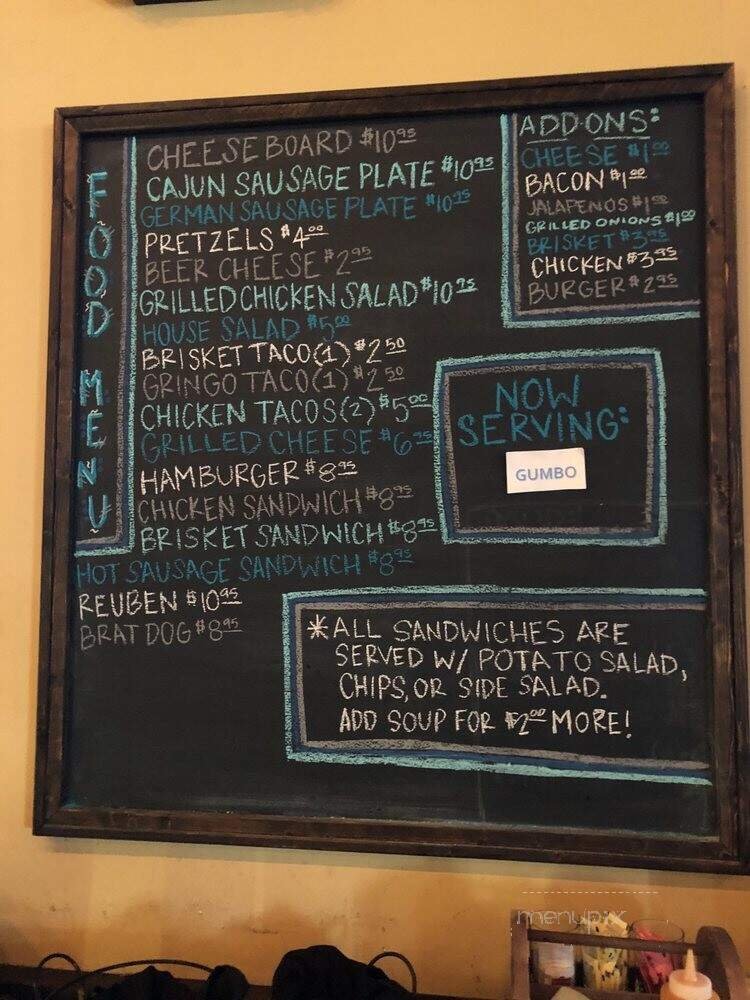 FOOD MENU
CHEESE BOARD $10.95
CAJUN SAUSAGE PLATE $10.95
GERMAN SAUSAGE PLATE $10.95
PRETZELS $4.00
BEER CHEESE $2.95
GRILLED CHICKEN SALAD $10.95
HOUSE SALAD $5.00
BRISKET TACO (1) $2.50
GRINGO TACO (1) $2.50
CHICKEN TACOS (2) $5.00
GRILLED CHEESE $6.95
HAMBURGER $8.95
CHICKEN SANDWICH $8.95
BRISKET SANDWICH $8.95
HOT SAUSAGE SANDWICH $8.95
REUBEN $10.95
BRAT DOG $8.95
ADD-ONS:
CHEESE $1.00
BACON $1.00
JALAPENOS $1.00
GRILLED ONIONS $1.00
BRISKET $3.95
CHICKEN $3.95
BURGER $2.95
NOW
SERVING:
GUMBO
*ALL SANDWICHES ARE
SERVED W/ POTATO SALAD,
CHIPS, OR SIDE SALAD.
ADD SOUP FOR $2.00 MORE!
menupix